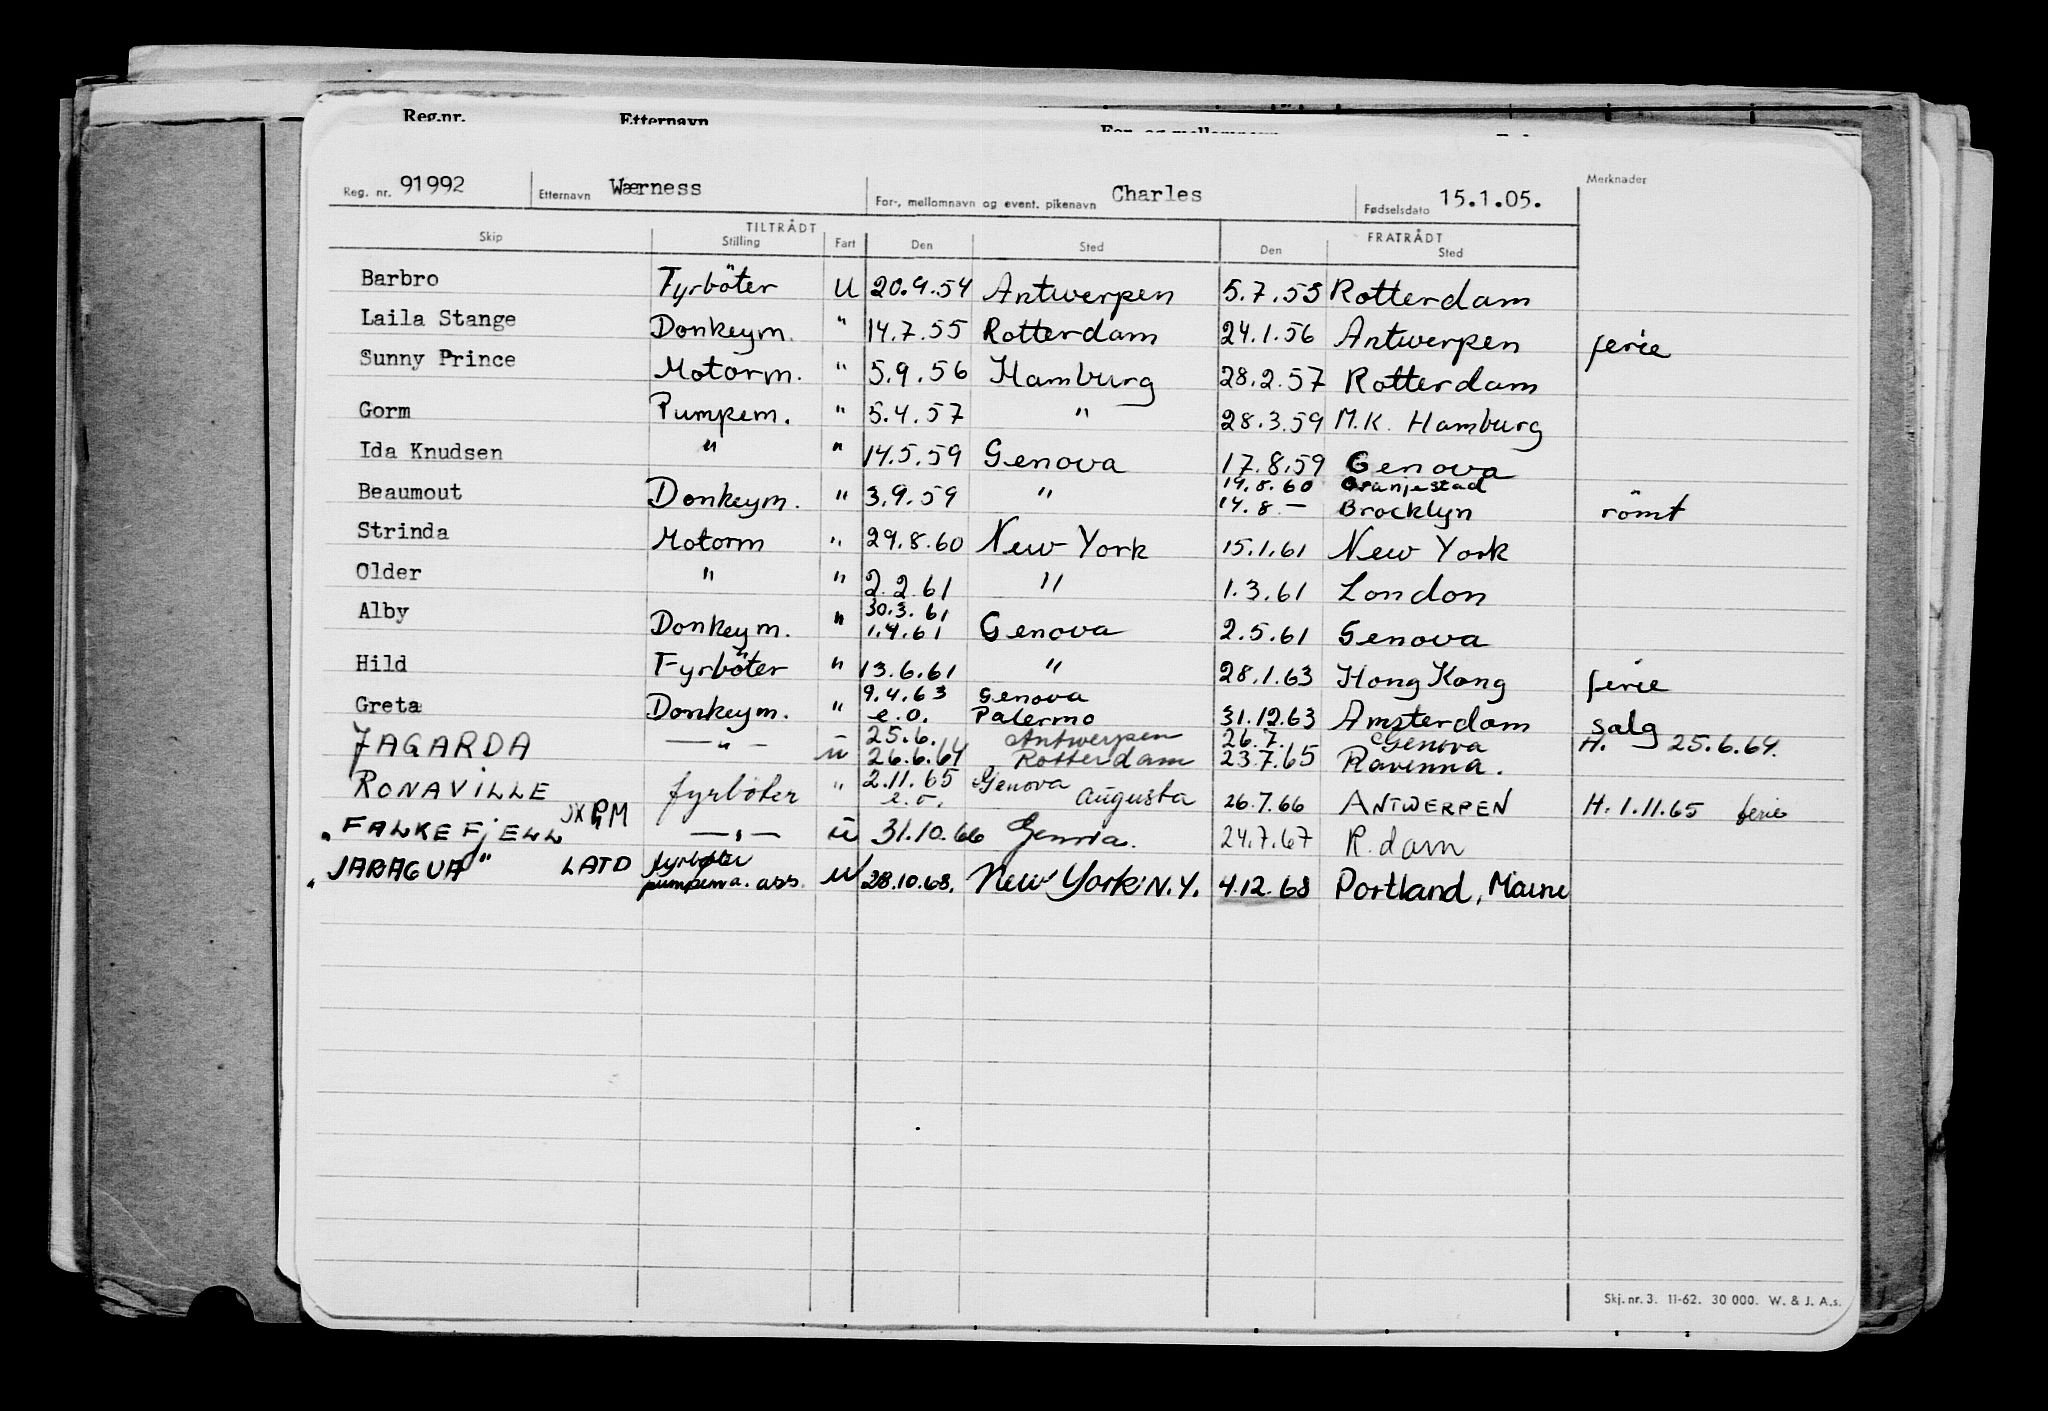 Reg.nr. Etternavn For- og mellomnavn
Reg. nr. 91992 Etternavn Wærness For-, mellomnavn og event. pikenavn Charles Fødselsdato 15.1.05. Merknader
TILTRÅDT FRATRÅDT
Skip Stilling Fart Den Sted Den Sted
Barbro Fyrböter U 20.9.54 Antwerpen 5.7.55 Rotterdam
Laila Stange Donkeym. " 14.7.55 Rotterdam 24.1.56 Antwerpen ferie
Sunny Prince Motorm. " 5.9.56 Hamburg 28.2.57 Rotterdam
Gorm Pumpem. " 5.4.57 " 28.3.59 M.K. Hamburg
Ida Knudsen " " 14.5.59 Genova 17.8.59 Genova
14.8.60 Oranjestad
Beaumout Donkeym. " 3.9.59 " 14.8.— Brocklyn römt
Strinda Motorm " 29.8.60 New York 15.1.61 New York
Older " " 2.2.61 " 1.3.61 London
30.3.61
Alby Donkeym. " 1.4.61 Genova 2.5.61 Genova
Hild Fyrböter " 13.6.61 " 28.1.63 Hong Kong ferie
9.4.63 Genova
Greta Donkeym. " e.o. Palermo 31.12.63 Amsterdam salg
25.6. Antwerpen 26.7. Genova H. 25.6.64.
JAGARDA —"— u 26.6.64 Rotterdam 23.7.65 Ravenna.
2.11.65 Genova
RONAVILLE fyrböter " e.o. Augusta 26.7.66 ANTWERPEN H. 1.11.65 ferie
"FALKEFJELL JXPM —"— u 31.10.66 Genova. 24.7.67 R.dam
fyrbøter
"JARAGUA" LATD pumpema. ass. u 28.10.68. New York N.Y. 4.12.68 Portland, Maine
Skj. nr. 3. 11-62. 30 000. W. & J. A.s.